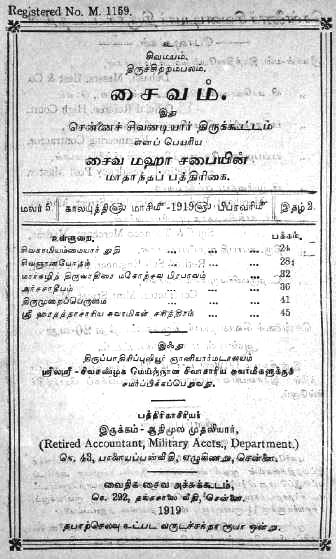 Registered No. M. 1159.
உ
சிவமயம்.
திருச்சிற்றம்பலம்.
சைவம்.
இது
சென்னைச் சிவனடியார் திருக்கூட்டம்
எனப் பெயரிய
சைவ மஹா சபையின்
மாதாந்தப் பத்திரிகை.
மலர் 5 காலயுத்தி௵ மாசி௴ -1919௵ பிப்ரவரி௴ இதழ் 2.
உள்ளுறை. பக்கம்.
சிவகாமியம்மையார் துதி ... ... 24
சிவஞானபோதம் ... ... 28
மார்கழித் திருவாதிரை மகோற்சவ பிரபாவம் ... 32
அர்ச்சாதீபம் ... ... 36
திருமுறைப்பெருமை ... ... 41
ஸ்ரீ ஹரதத்தாசாரிய சுவாமிகள் சரித்திரம் ... 45
இஃது
திருப்பாதிரிப்புலியூர் ஞானியார்மடாலயம்
ஸ்ரீலஸ்ரீ - சிவசண்முக மெய்ஞ்ஞான சிவாசாரிய சுவாமிகளுக்குச்
சமர்ப்பிக்கப்பெற்றது.
பத்திரிகாசிரியர்
இருக்கம் - ஆதிமூல முதலியார்,
(Retired Accountant, Military Accts., Department.)
நெ. 43, பாளையப்பன்வீதி, ஏழுகிணறு, சென்னை.
வைதிக சைவ அச்சுக்கூடம்,
நெ. 292, தங்கசாலை வீதி, சென்னை.
1919
தபாற்செலவு உட்பட வருடச்சந்தா ரூபா ஒன்று.